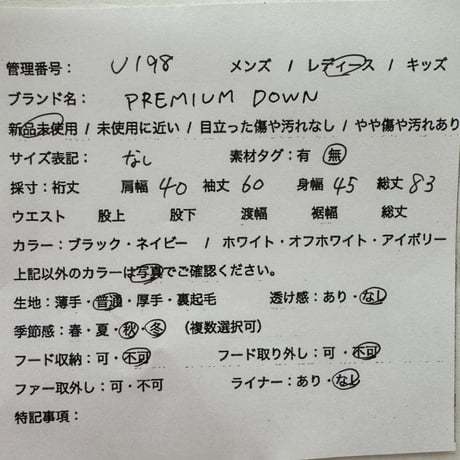 管理番号： U198 メンズ / レディース / キッズ
ブランド名： PREMIUM DOWN
新品未使用 / 未使用に近い / 目立った傷や汚れなし / やや傷や汚れあり
サイズ表記： なし 素材タグ：有 無
採寸：裄丈 肩幅 40 袖丈 60 身幅 45 総丈 83
ウエスト 股上 股下 渡幅 裾幅 総丈
カラー：ブラック・ネイビー / ホワイト・オフホワイト・アイボリー
上記以外のカラーは写真でご確認ください。
生地：薄手・普通・厚手・裏起毛 透け感：あり・なし
季節感：春・夏・秋・冬 （複数選択可）
フード収納：可・不可 フード取り外し：可・不可
ファー取外し：可・不可 ライナー：あり・なし
特記事項：